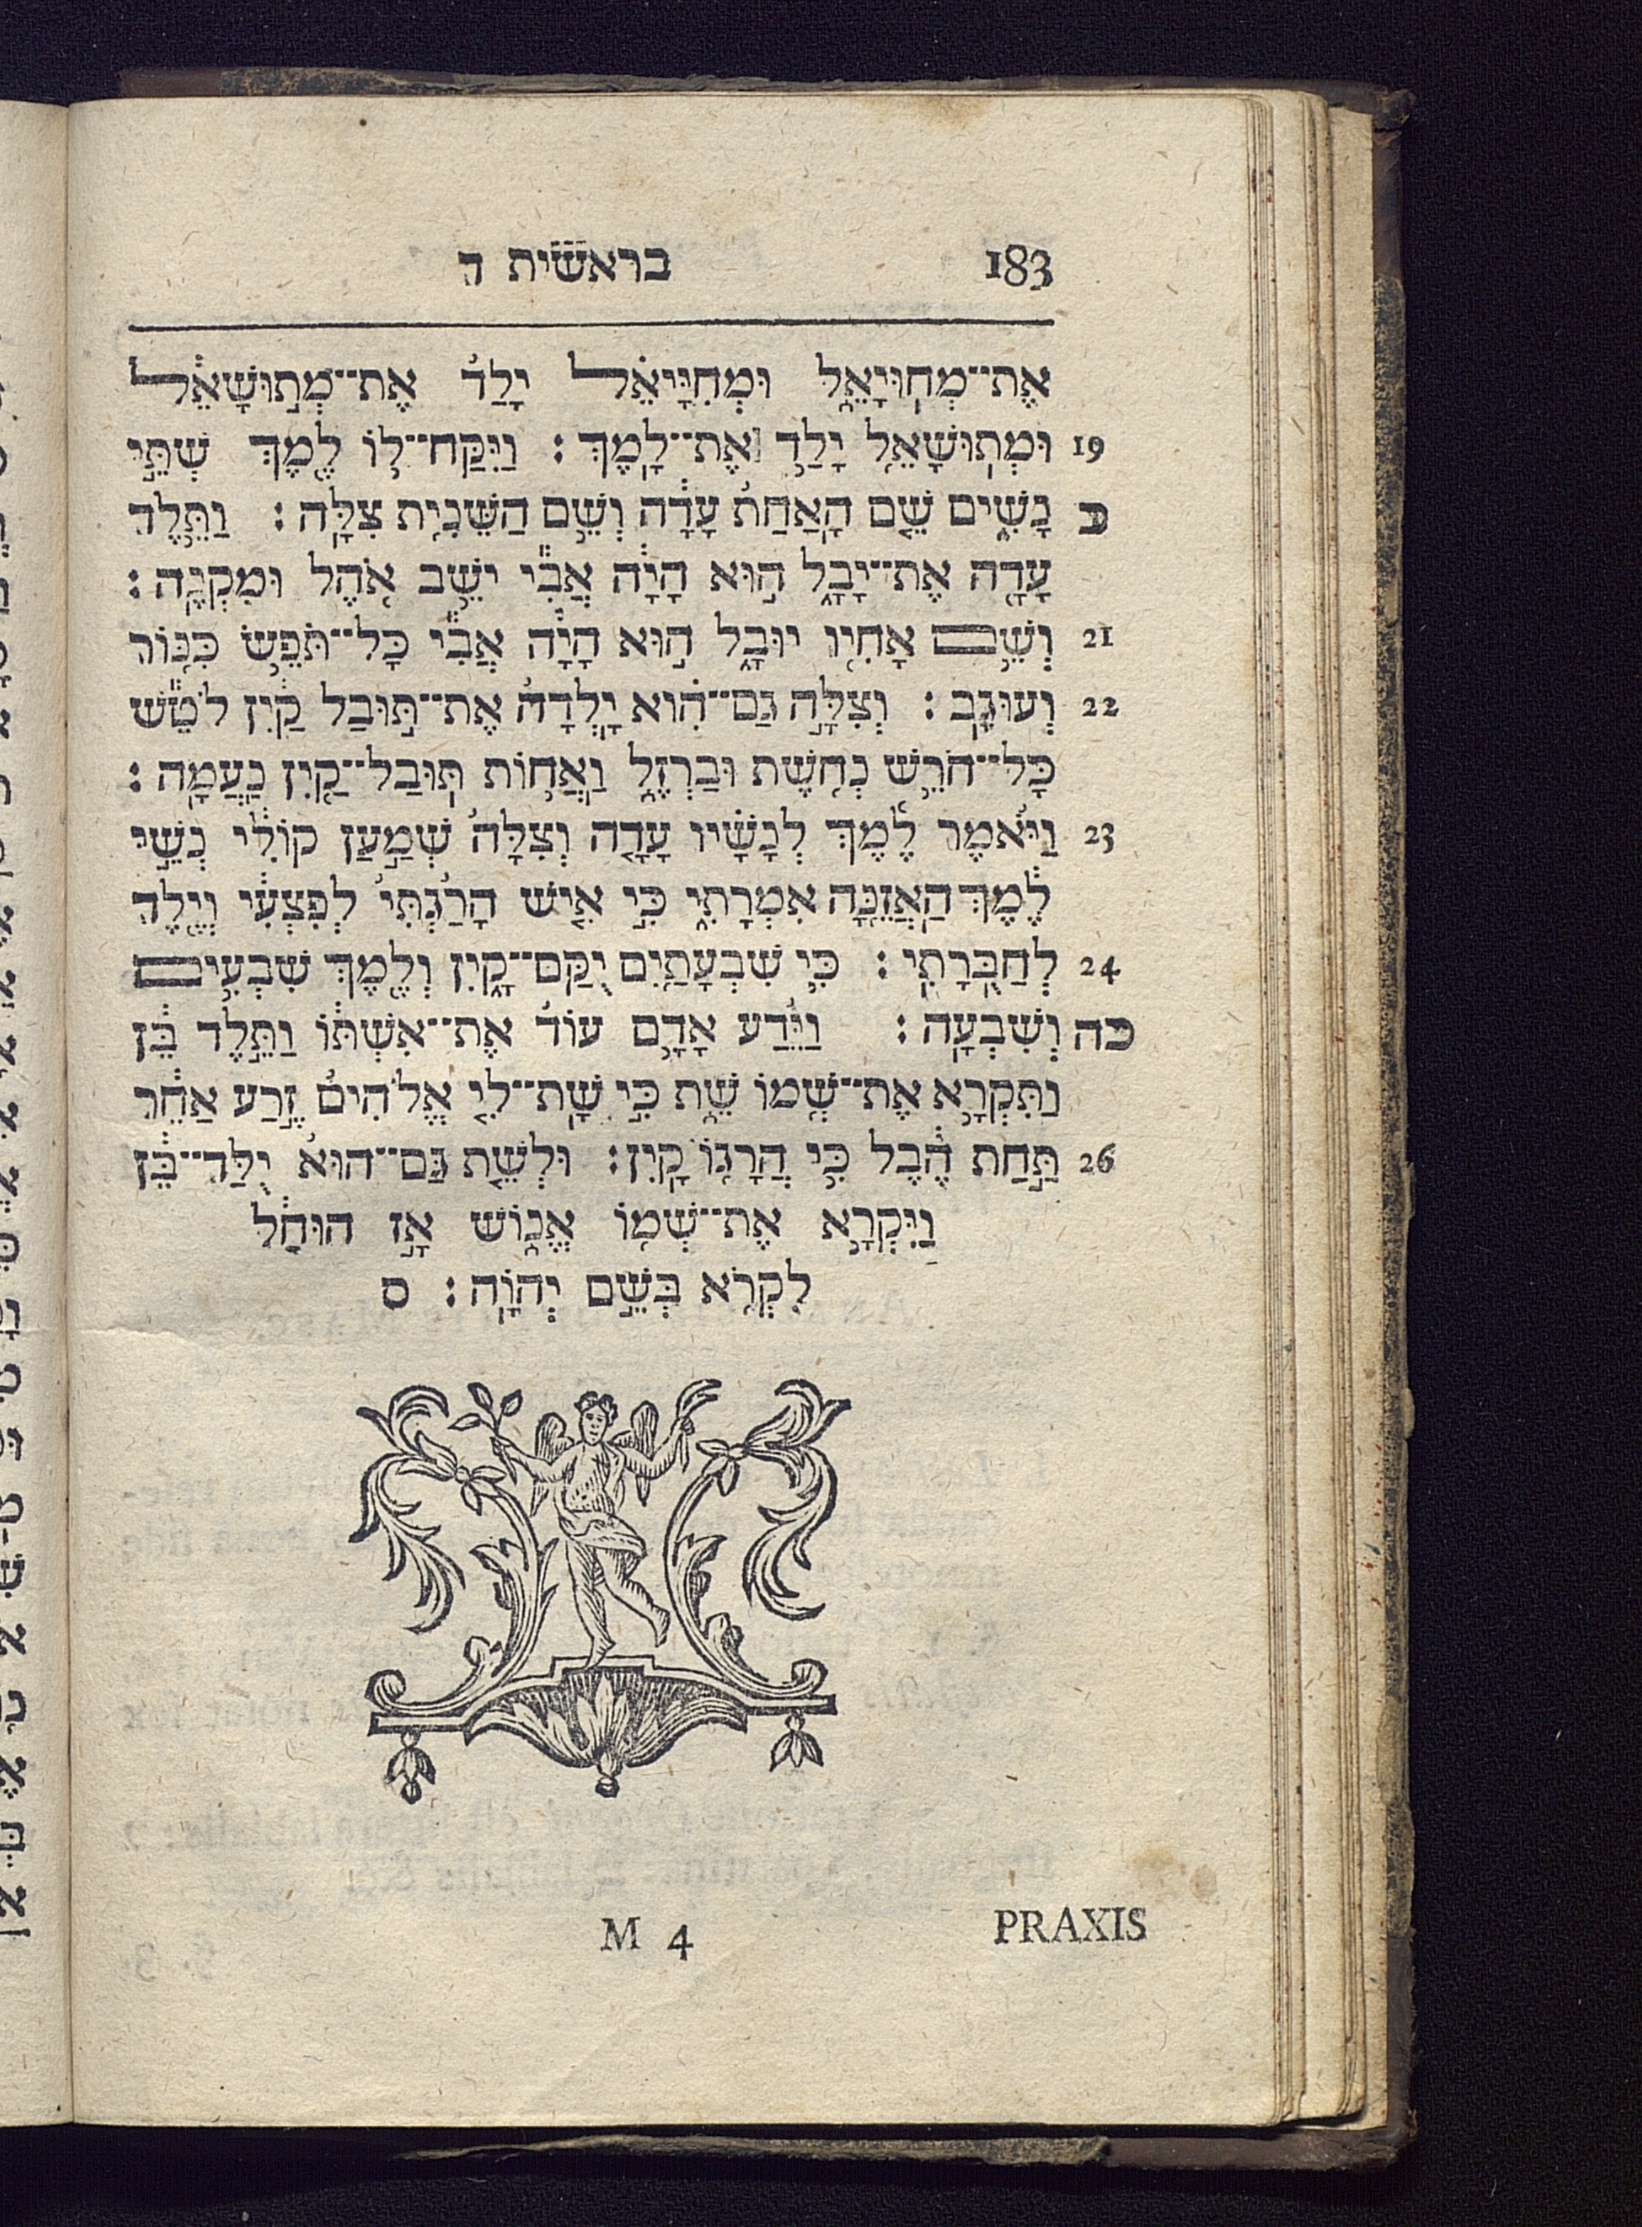 183 בראשית ד
אֶת־מְחֽוּיָאֵ֑ל וּמְחִיָּיאֵ֗ל יָלַד֙ אֶת־מְת֣וּשָׁאֵ֔ל
19 וּמְתֽוּשָׁאֵ֖ל יָלַ֥ד אֶת־לָֽמֶךְ׃ וַיִּֽקַּֽח־ל֥וֹ לֶ֖מֶךְ שְׁתֵּ֣י
כ נָשִׁ֑ים שֵׁ֤ם הָֽאַחַת֙ עָדָ֔ה וְשֵׁ֥ם הַשֵּׁנִ֖ית צִלָּֽה׃ וַתֵּ֥לֶד
עָדָ֖ה אֶת־יָבָ֑ל ה֣וּא הָיָ֔ה אֲבִ֕י יֹשֵׁ֥ב אֹ֖הֶל וּמִקְנֶֽה׃
21 וְשֵׁ֥ם אָחִ֖יו יוּבָ֑ל ה֣וּא הָיָ֔ה אֲבִ֕י כָּל־תֹּפֵ֥שׂ כִּנּ֖וֹר
22 וְעוּגָֽב׃ וְצִלָּ֣ה גַם־הִ֗וא יָֽלְדָה֙ אֶת־תּ֣וּבַל קַ֔יִן לֹטֵ֕שׁ
כָּל־חֹרֵ֥שׁ נְחֹ֖שֶׁת וּבַרְזֶ֑ל וַֽאֲח֥וֹת תּֽוּבַל־קַ֖יִן נַֽעֲמָֽה׃
23 וַיֹּ֨אמֶר לֶ֜מֶךְ לְנָשָׁ֗יו עָדָ֤ה וְצִלָּה֙ שְׁמַ֣עַן קוֹלִ֔י נְשֵׁ֣י
לֶ֔מֶךְ הַֽאֲזֵ֖נָּה אִמְרָתִ֑י כִּ֣י אִ֤ישׁ הָרַ֨גְתִּי֙ לְפִצְעִ֔י וְיֶ֖לֶד
24 לְחַבֻּֽרָתִֽי׃ כִּ֥י שִׁבְעָתַ֖יִם יֻקַּם־קָ֑יִן וְלֶ֖מֶךְ שִׁבְעִ֥ים
כה וְשִׁבְעָֽה׃ וַיֵּ֨דַע אָדָ֥ם עוֹד֙ אֶת־אִשְׁתּ֔וֹ וַתֵּ֣לֶד בֵּ֔ן
וַתִּקְרָ֥א אֶת־שְׁמ֖וֹ שֵׁ֑ת כִּ֣י שָֽׁת־לִ֤י אֱלֹהִים֙ זֶ֣רַע אַחֵ֔ר
26 תַּ֣חַת הֶ֔בֶל כִּ֥י הֲרָג֖וֹ קָֽיִן׃ וּלְשֵׁ֤ת גַּם־הוּא֙ יֻלַּד־בֵּ֔ן
וַיִּקְרָ֥א אֶת־שְׁמ֖וֹ אֱנ֑וֹשׁ אָ֣ז הוּחַ֔ל
לִקְרֹ֖א בְּשֵׁ֥ם יְהוָֹֽה׃ ס
M 4 PRAXIS